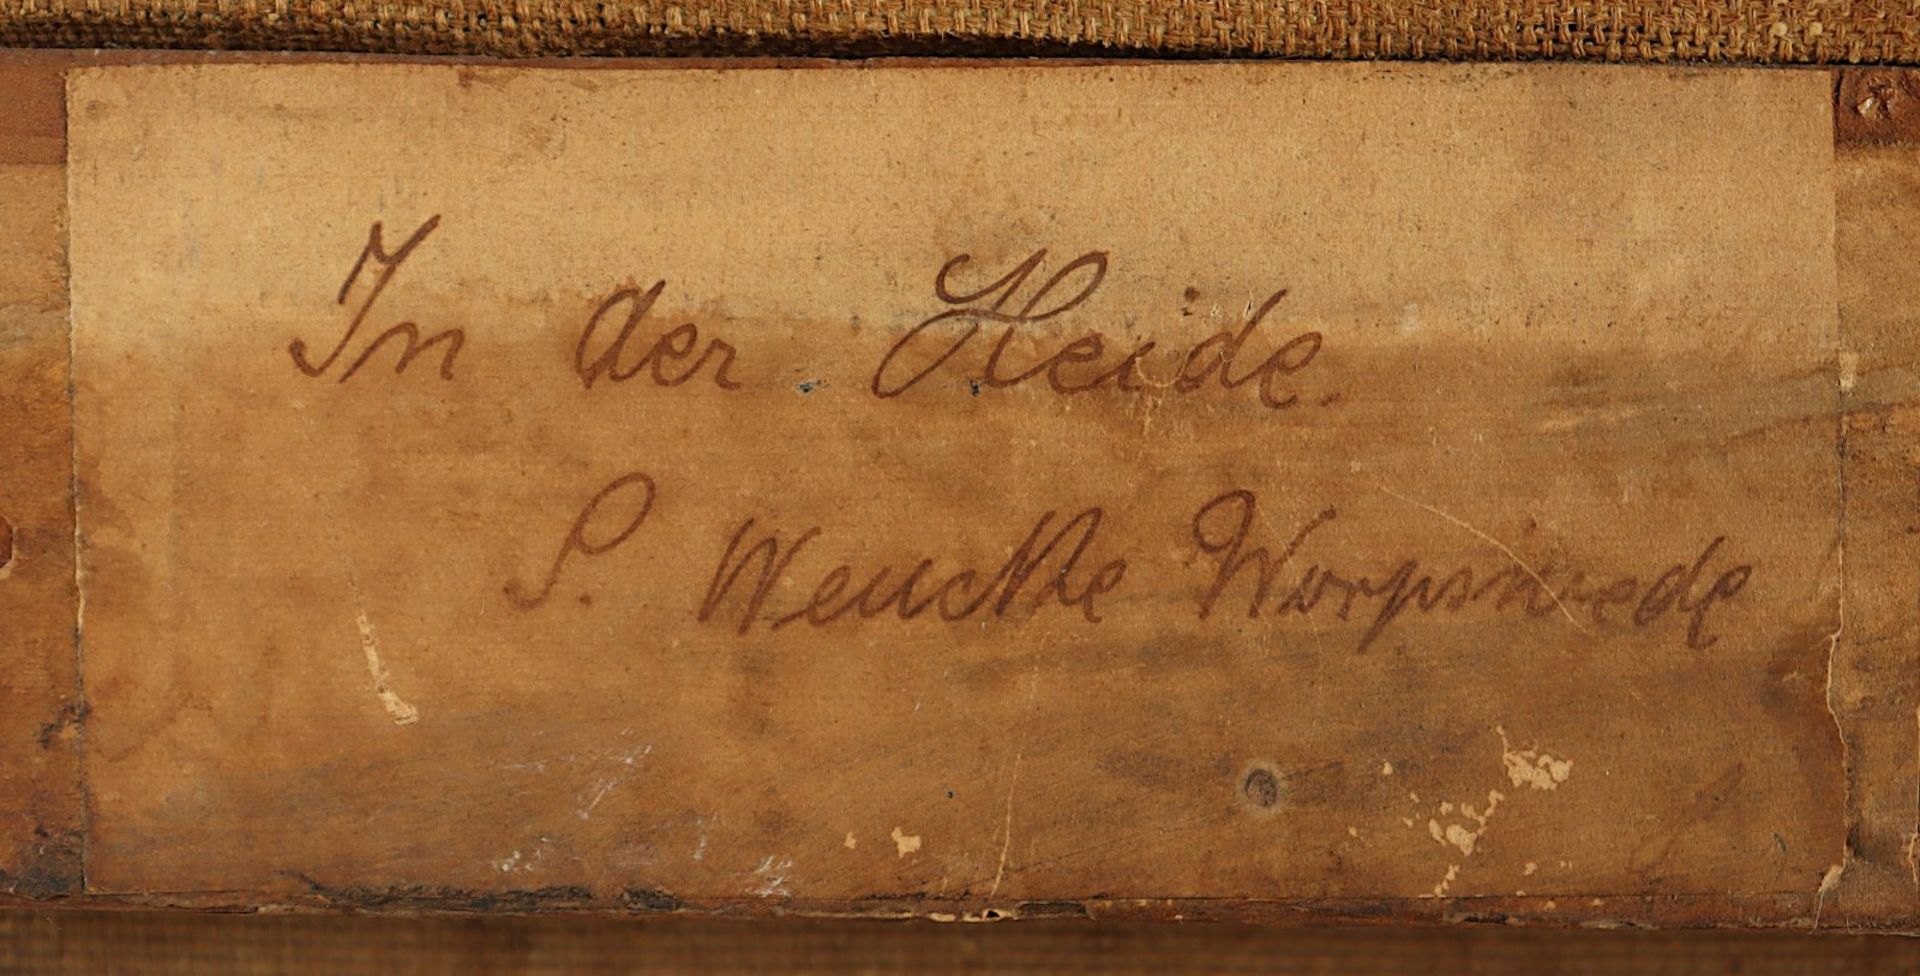 In der Heide.
S. Wencke Worpswede